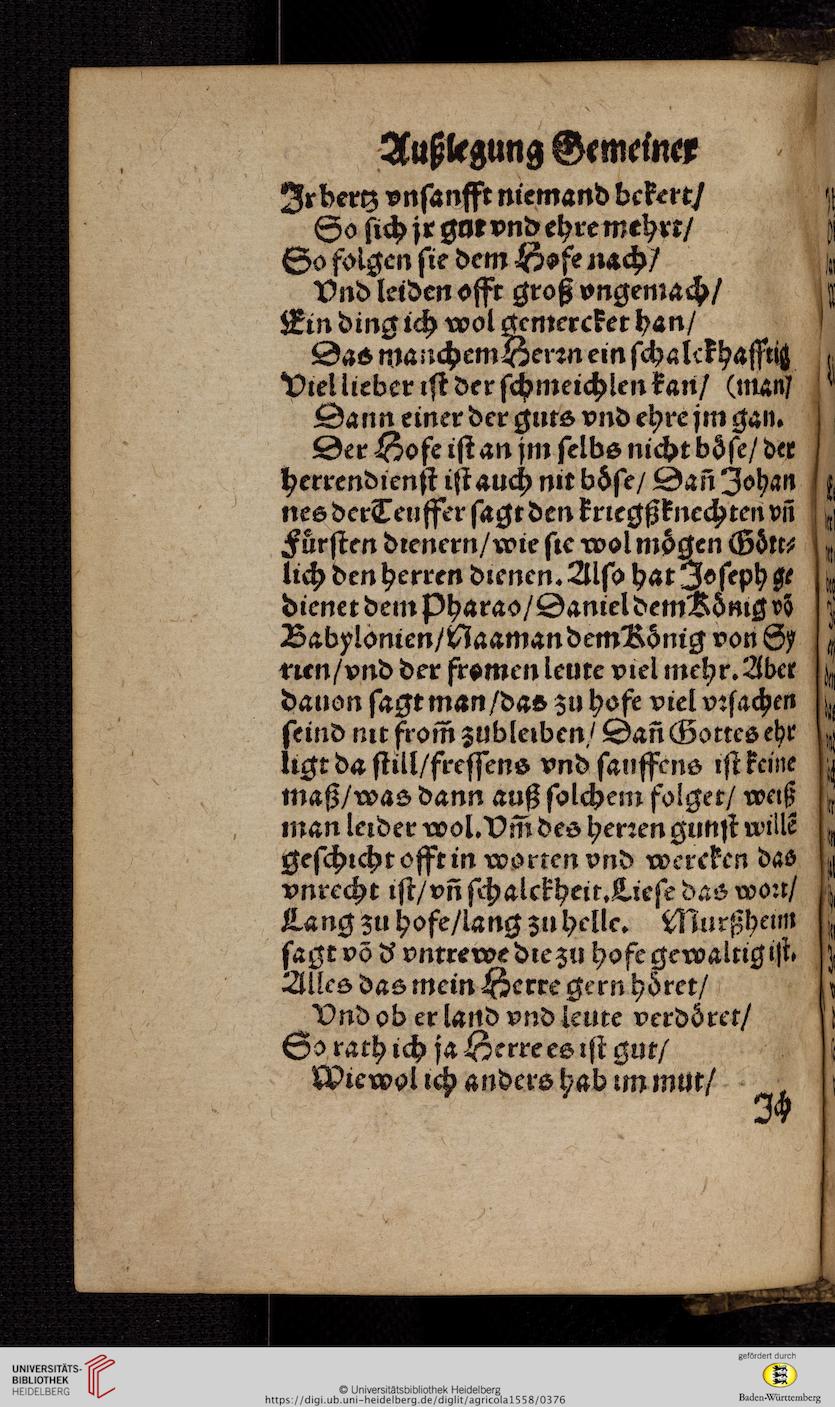 Außlegung Gemeiner
Ir hertz vnsanfft niemand bekert/
So sich jr gut vnd ehre mehrt/
So folgen sie dem Hofe nach/
Vnd leiden offt groß vngemach/
Ein ding ich wol gemercket han/
Das manchem Herꝛn ein schalckhafftig
Viel lieber ist der schmeichlen kan/ (man/
Dann einer der guts vnd ehre jm gan.
Der Hofe ist an jm selbs nicht böse/ der
herrendienst ist auch nit böse/ Dañ Johan
nes der Teuffer sagt den kriegßknechten vñ
Fürsten dienern/ wie sie wol mögen Gött⸗
lich den herren dienen. Also hat Joseph ge
dienet dem Pharao/ Daniel dem König võ
Babylonien/ Naaman dem König von Sy
rien/ vnd der fromen leute viel mehr. Aber
dauon sagt man/ das zu hofe viel vꝛsachen
seind nit from̃ zubleiben/ Dañ Gottes ehr
ligt da still/ fressens vnd sauffens ist keine
maß/ was dann auß solchem folget/ weiß
man leider wol. Vm̃ des herꝛen gunst willē
geschicht offt in worten vnd wercken das
vnrecht ist/ vñ schalckheit. Liese das woꝛt/
Lang zu hofe/ lang zu helle. Murßheim
sagt võ d' vntrewe die zu hofe gewaltig ist.
Alles das mein Herre gern höret/
Vnd ob er land vnd leute verdöret/
So rath ich ja Herre es ist gut/
Wiewol ich anders hab im mut/
Ich
UNIVERSITÄTS-
BIBLIOTHEK
HEIDELBERG
© Universitätsbibliothek Heidelberg
https://digi.ub.uni-heidelberg.de/diglit/agricola1558/0376
gefördert durch
Baden-Württemberg